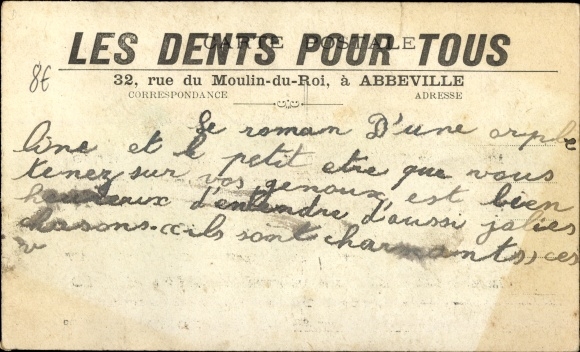 CARTE POSTALE
LES DENTS POUR TOUS
32, rue du Moulin-du-Roi, à ABBEVILLE
CORRESPONDANCE ADRESSE
8€
Le roman D'une orphe
line et le petit etre que vous
tenez sur vos genoux est bien
heureux d'entendre d'aussi jolies
chansons. "ils sont charmants" ces